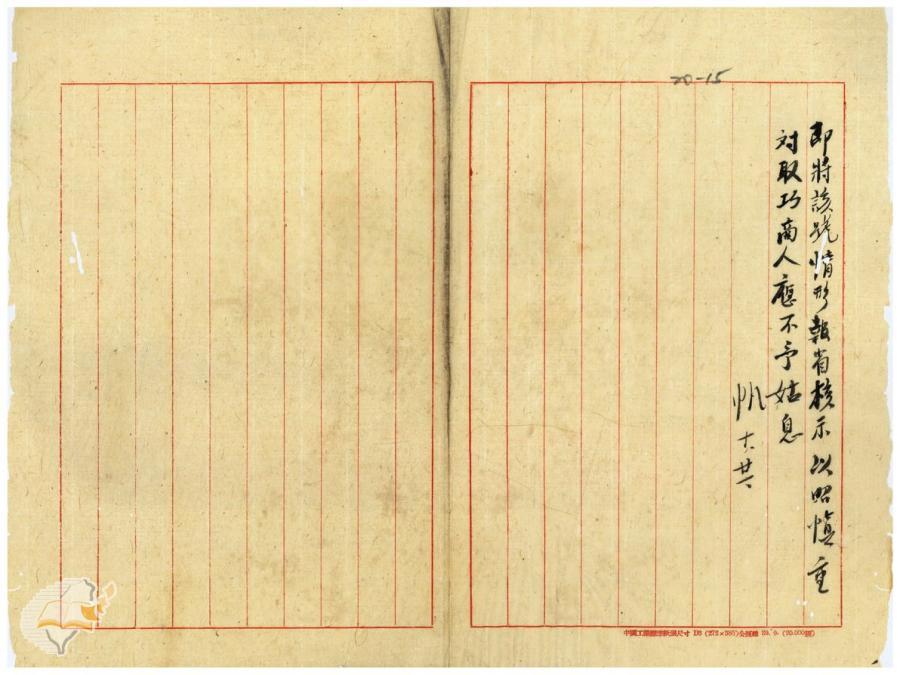 20-15
即將該號情形報省核示以昭慎重
対取巧商人應不予姑息
帆
中國工業標準紙張尺寸 B3 (272×385)公厘
39. 9. (20.000張)